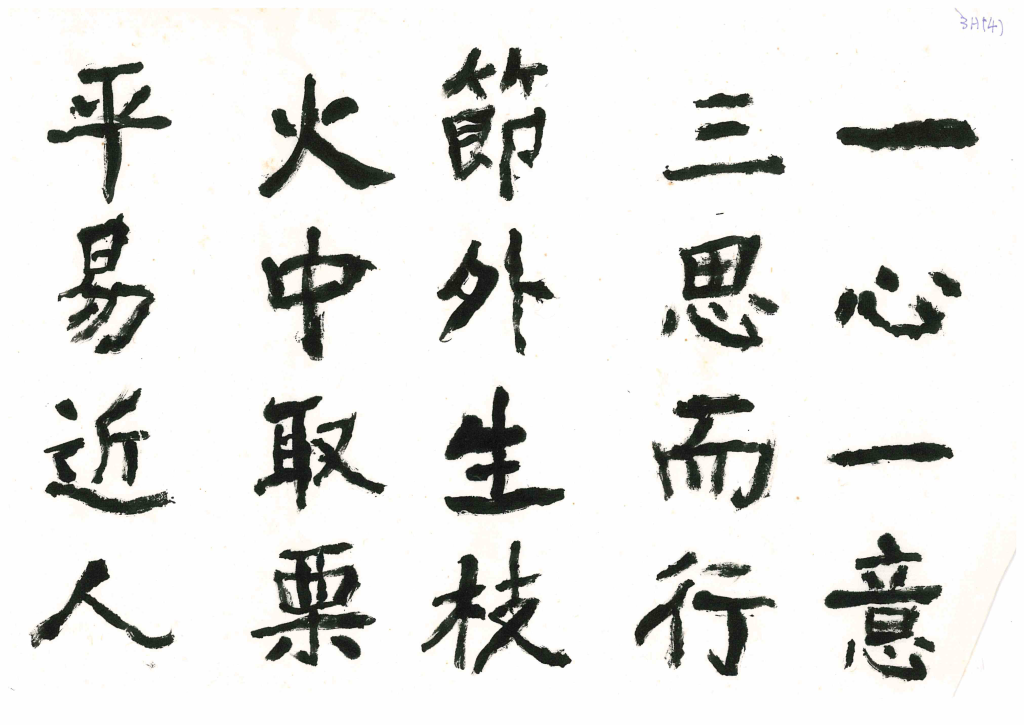 3H(4)
一心一意
三思而行
節外生枝
火中取栗
平易近人